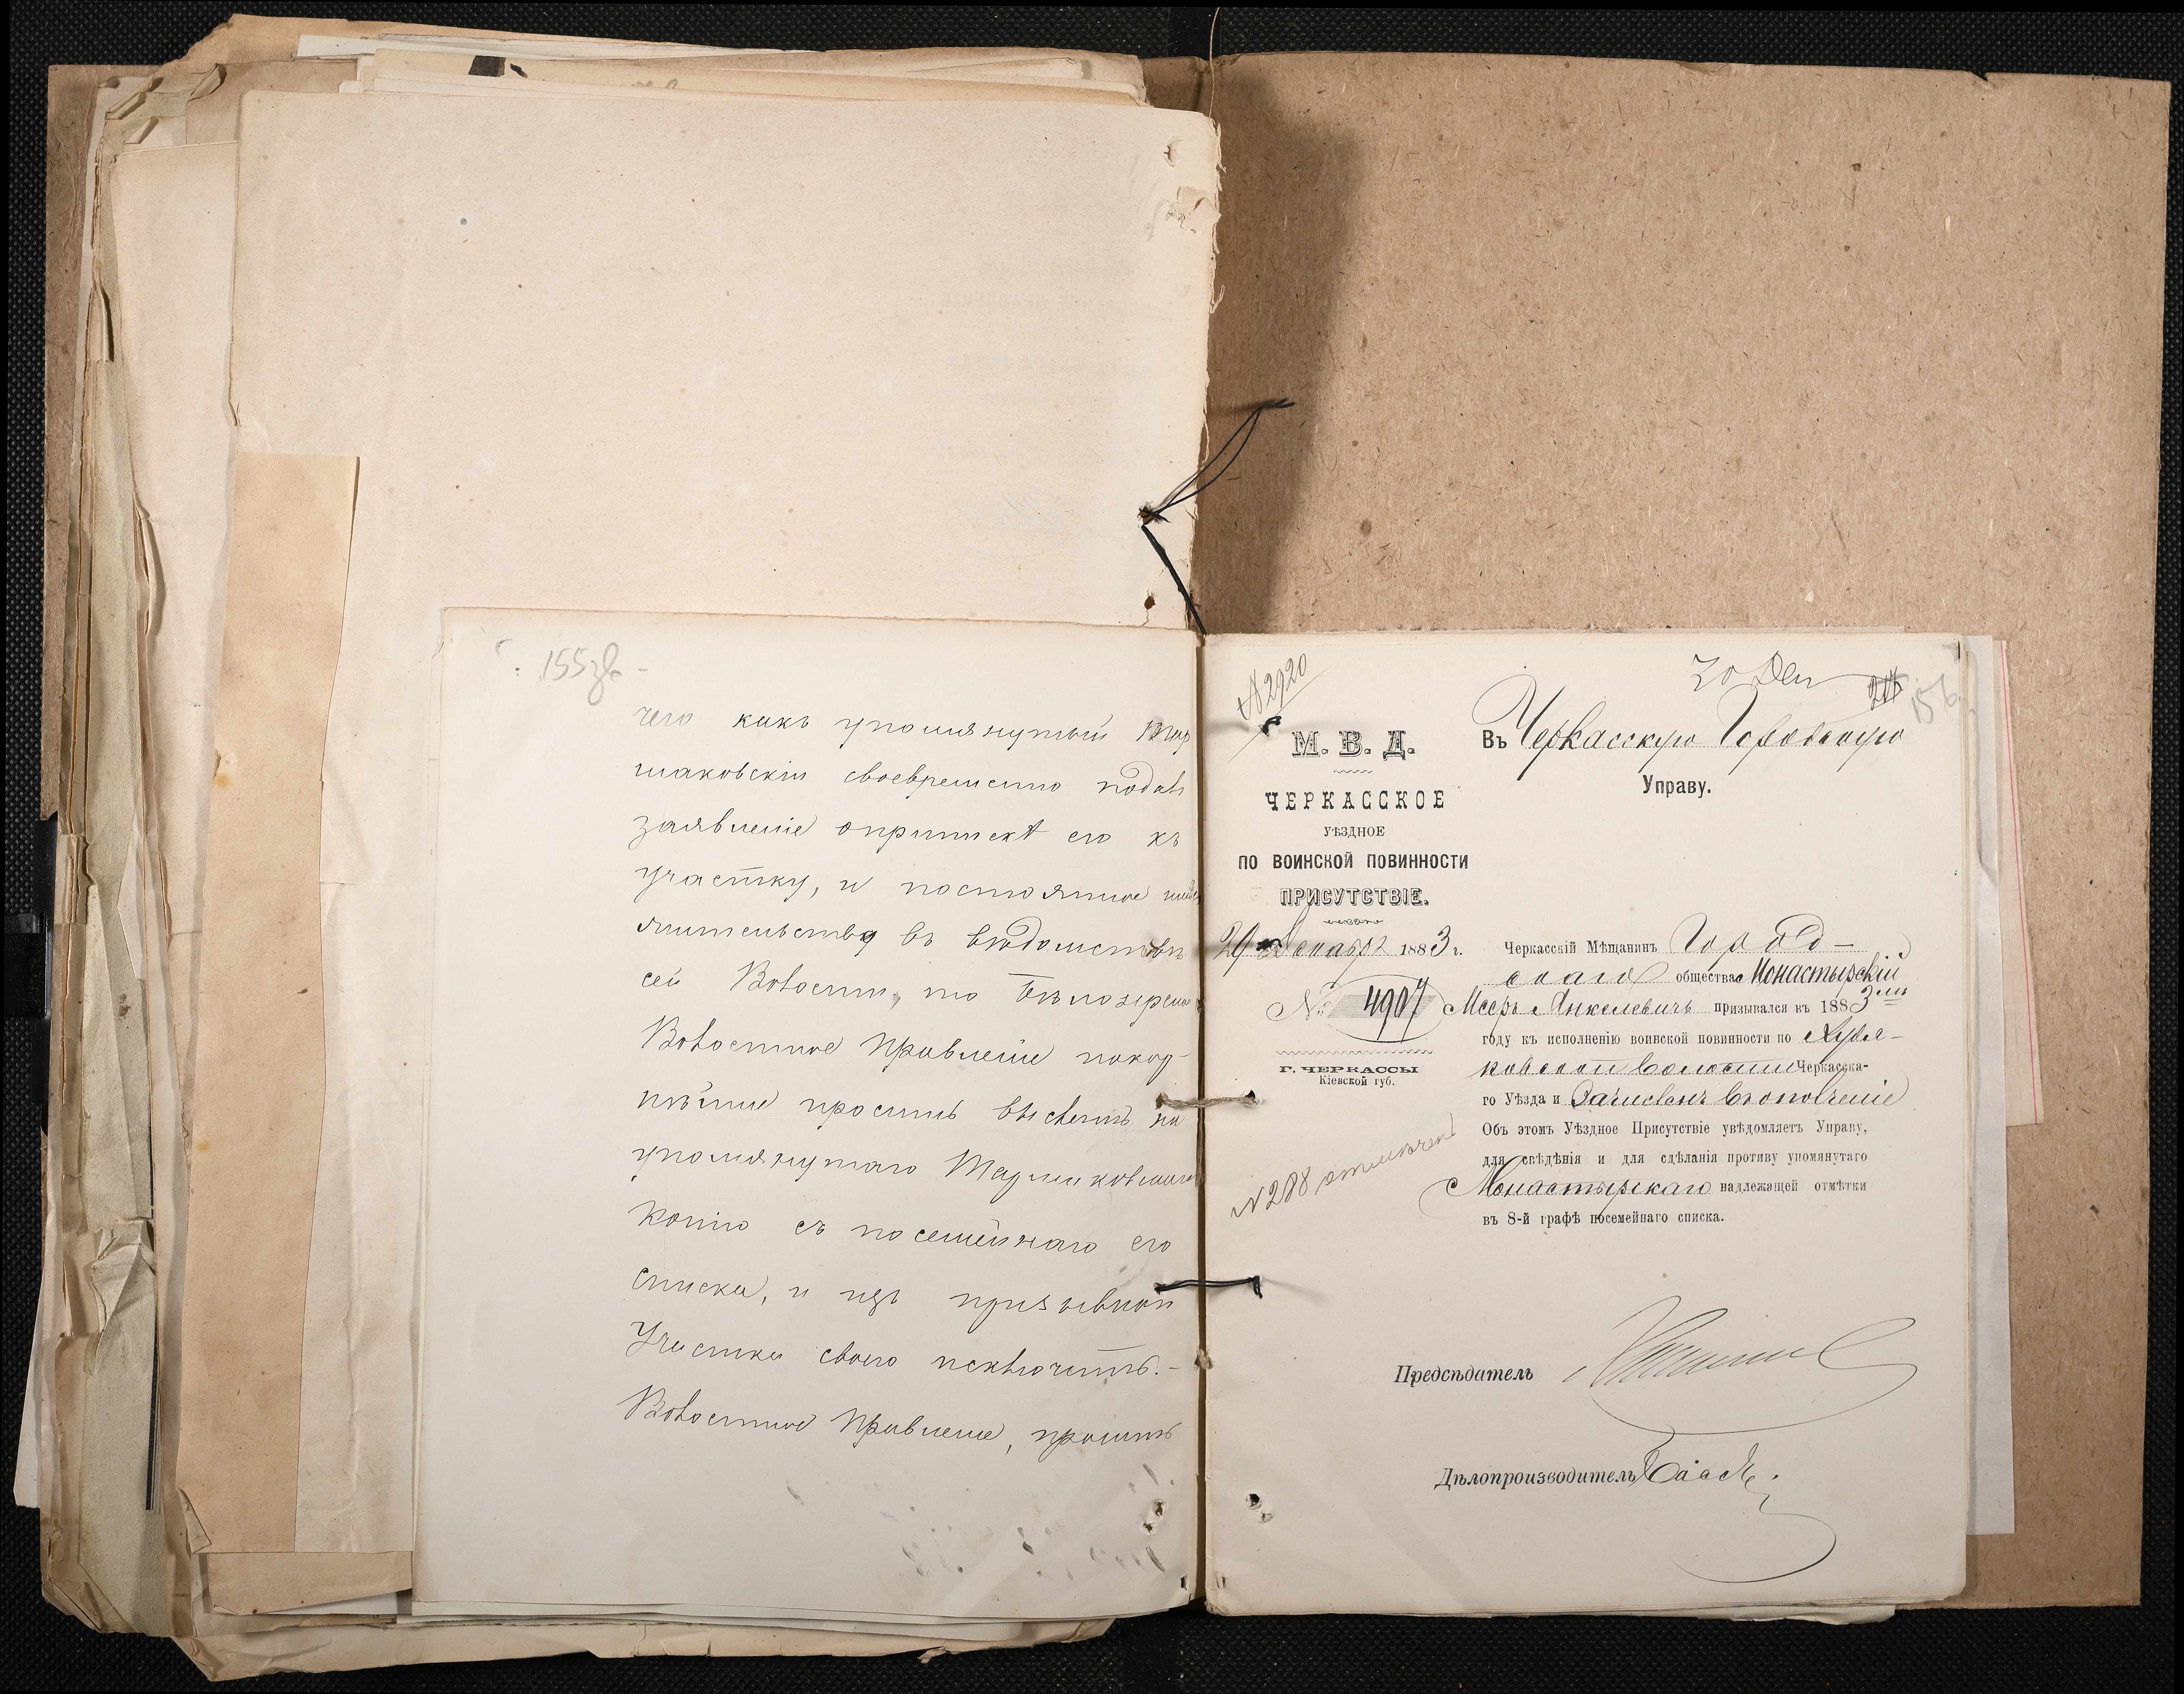 155 зв.
чего какъ упомянутый Тар
шаковскій своевременно подалъ
заявленіе о припискѣ его къ
участку, и постоянное
жительство въ вѣдомствѣ
сей Волости, то Бѣлозерское
Волостное Правленіе покор-
нѣйше проситъ выслать на
упомянутаго
копію съ посемейнаго его
списка, и изъ призывнаго
Участка своего исключить.-
Волостное Правленіе, проситъ
№ 2920
30 Дек
156
М. В. Д.
ЧЕРКАССКОЕ
УѢЗДНОЕ
ПО ВОИНСКОЙ ПОВИННОСТИ
ПРИСУТСТВІЕ.
29 Декабря 1883 г.
№ 4907
Г. ЧЕРКАССЫ
Кіевской губ.
№ 288 отмѣчен
Въ Черкасскую Городскую
Управу.
Черкасскій Мѣщанинъ Город-
скаго общества Монастырскій
Мееръ Янкелевичъ призывался въ 1883 мъ
году къ исполненію воинской повинности по Худя-
ковской волости Черкасска-
го Уѣзда и Зачисленъ въ ополченіе
Объ этомъ Уѣздное Присутствіе увѣдомляетъ Управу,
для свѣдѣнія и для сдѣланія противу упомянутаго
Монастырскаго надлежащей отмѣтки
въ 8-й графѣ посемейнаго списка.
Предсѣдатель
Дѣлопроизводитель